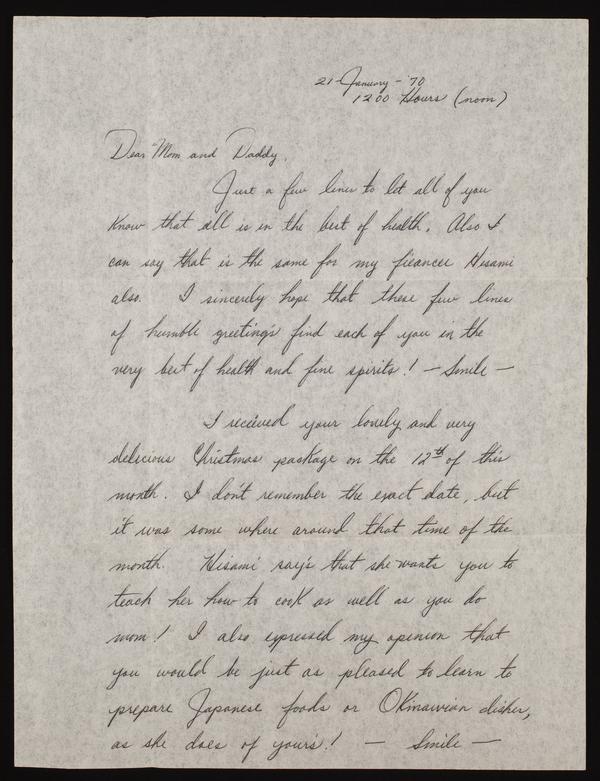 21-January-'70
1200 Hours (noon)
Dear Mom and Daddy,
Just a few lines to let all of you
know that all is in the best of health. Also I
can say that is the same for my fieancee Hisami
also. I sincerely hope that these few lines
of humble greeting's find each of you in the
very best of health and fine spirits! — Smile —
I received your lovely and very
delicious Christmas package on the 12th of this
month. I don't remember the exact date, but
it was some where around that time of the
month. Hisami say's that she wants you to
teach her how to cook as well as you do
mom! I also expressed my opinion that
you would be just as pleased to learn to
prepare Japanese foods or Okinawian dishes,
as she does of your's! — Smile —